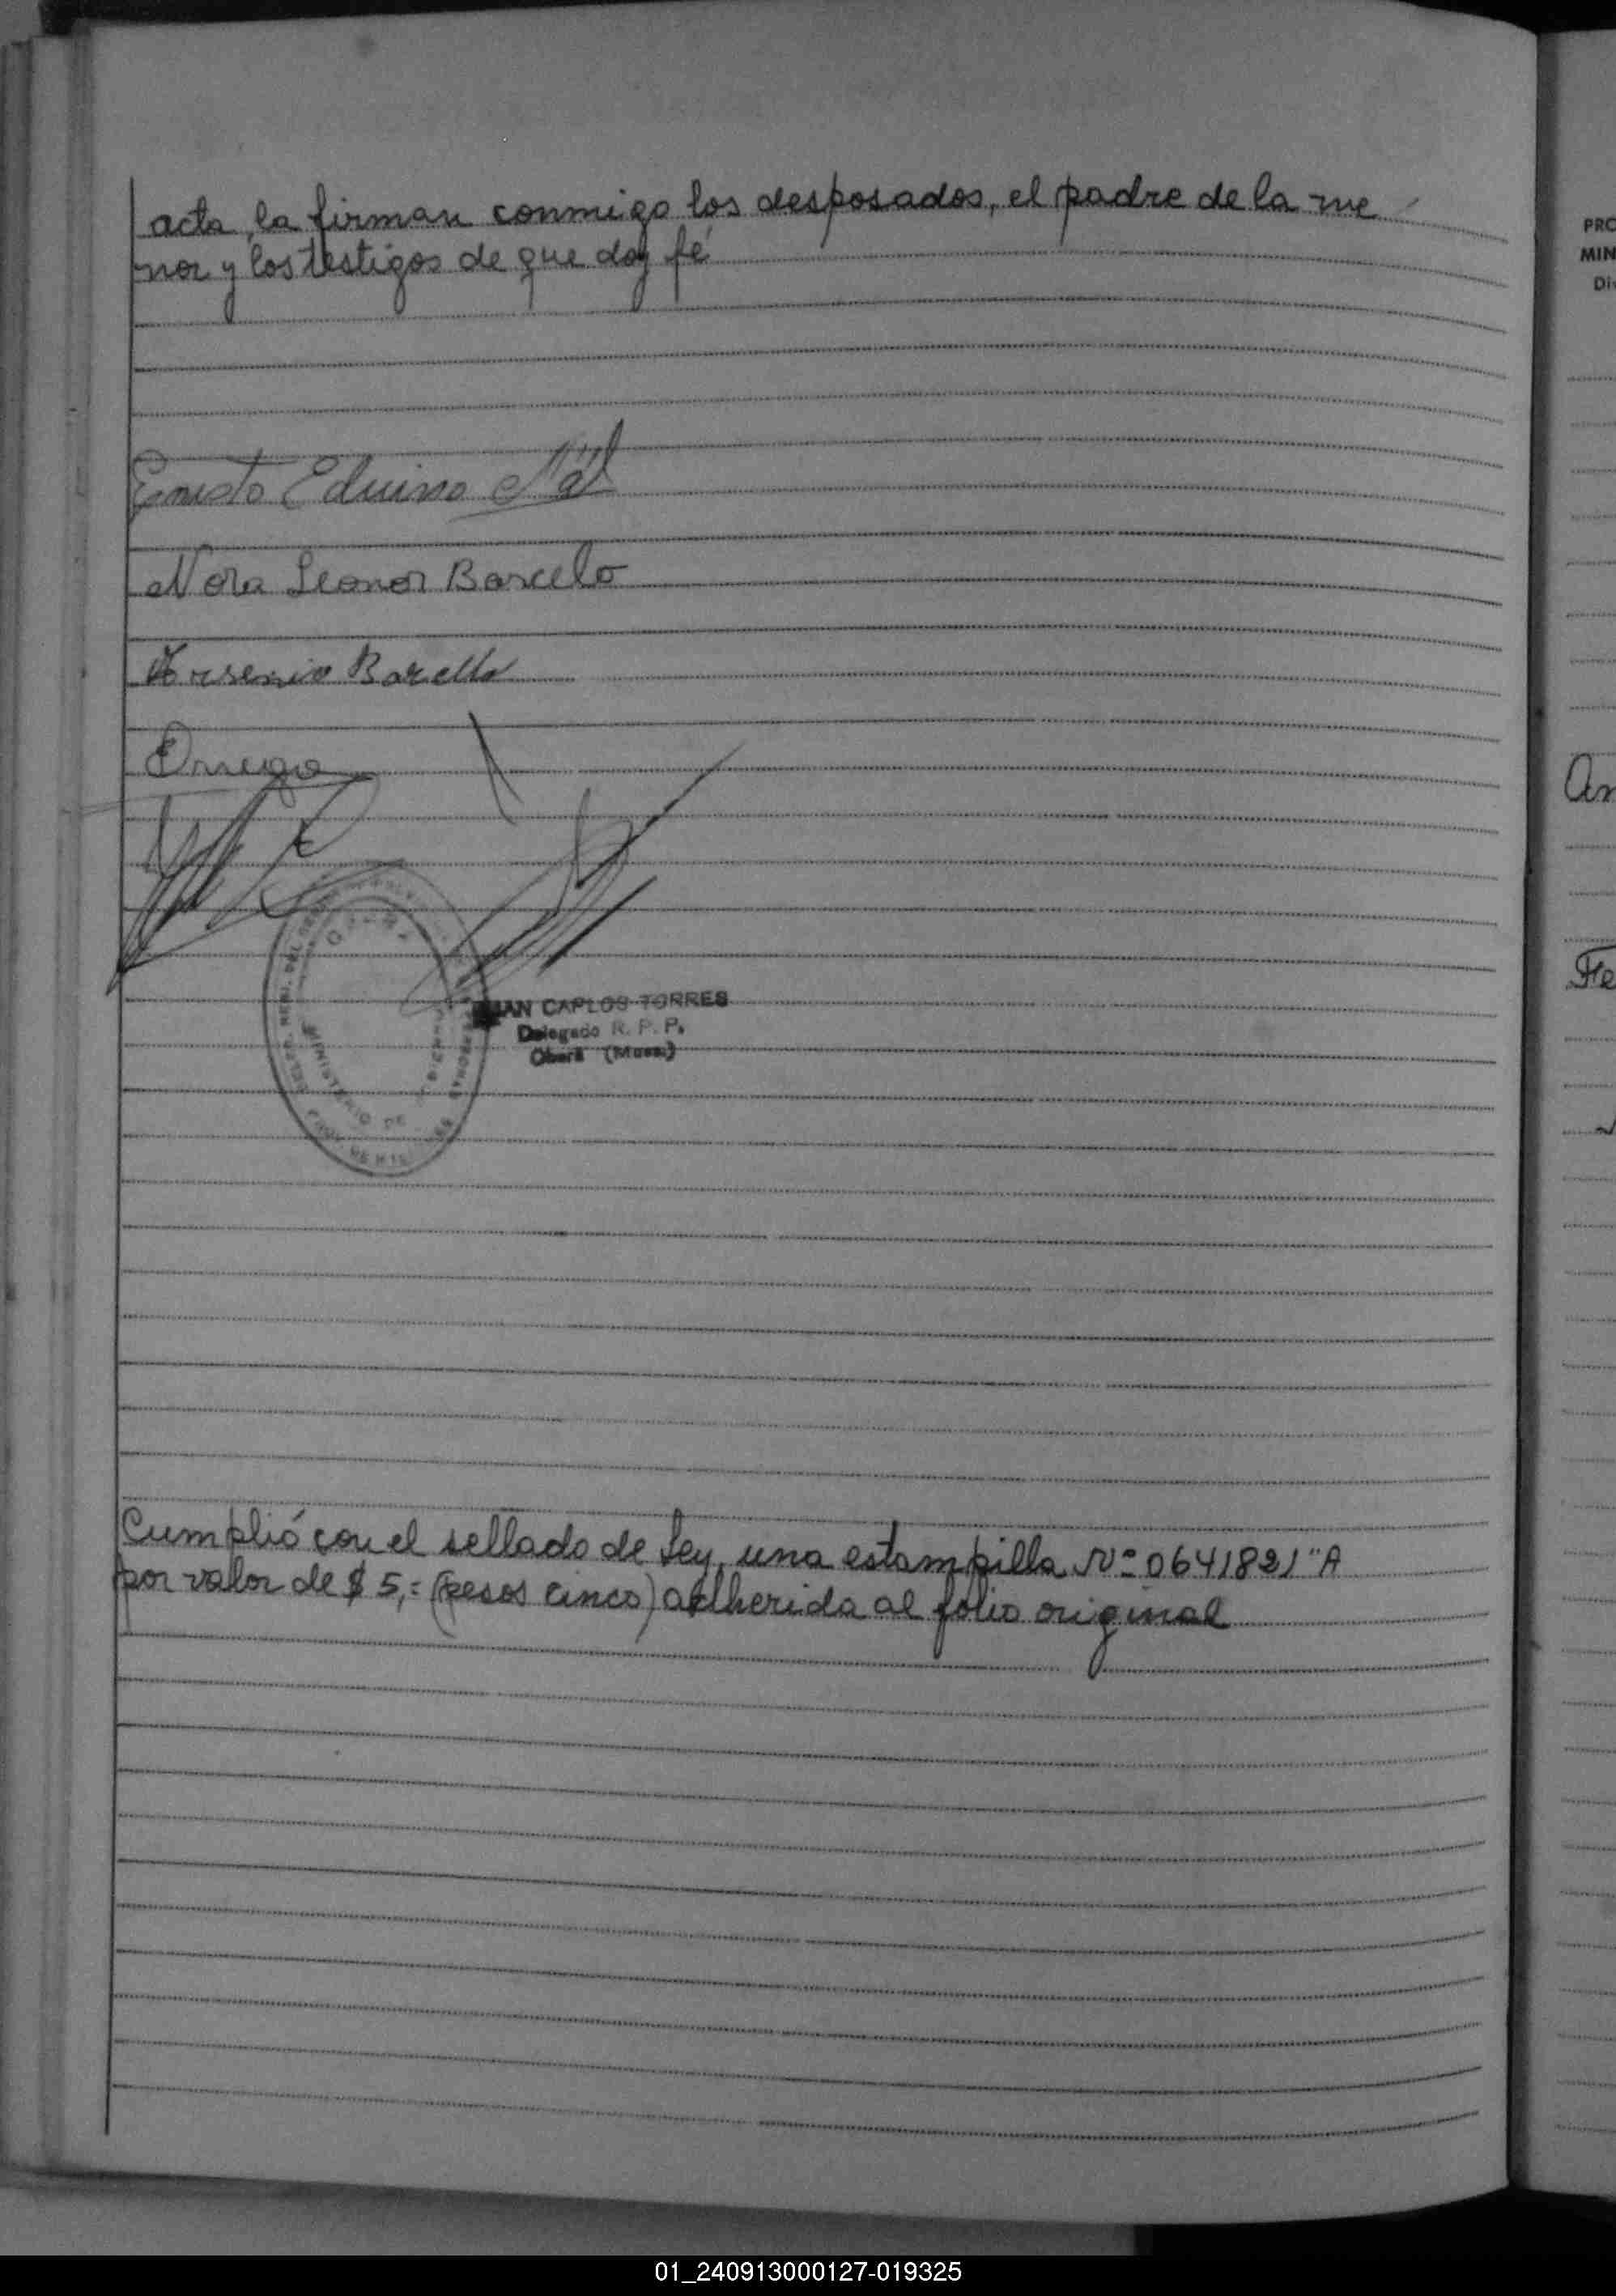 acta, la firman conmigo los desposados, el padre de la me
nor y los testigos de que doy fé
Ernesto Eduino
Nora Leonor Barcelo
Arsenio Barcelo
JUAN CARLOS TORRES
Delegado R. P. P.
Oberá (Mnes.)
MINISTERIO DE
Cumplió con el sellado de Ley, una estampilla Nº 0641821 "A
por valor de $ 5,= (pesos cinco) adherida al folio original
PRO
MIN
Di
An
Fe
01_240913000127-019325